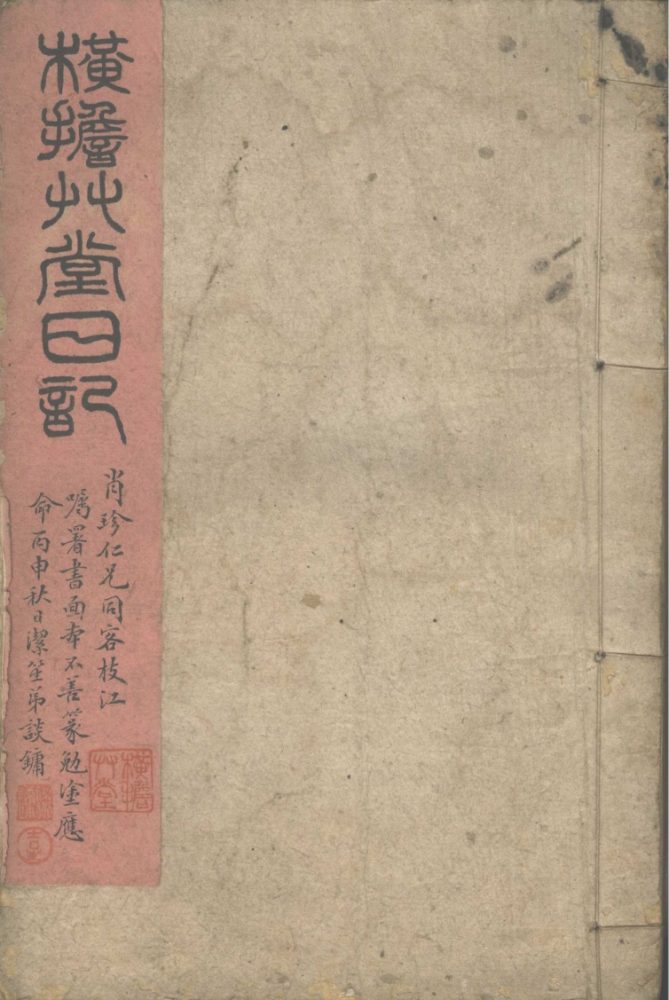 橫擔艸堂日記
肖珍仁兄同客枝江
囑署書面本不善篆勉塗應
命丙申秋日潔笙弟談鏞
橫擔艸堂